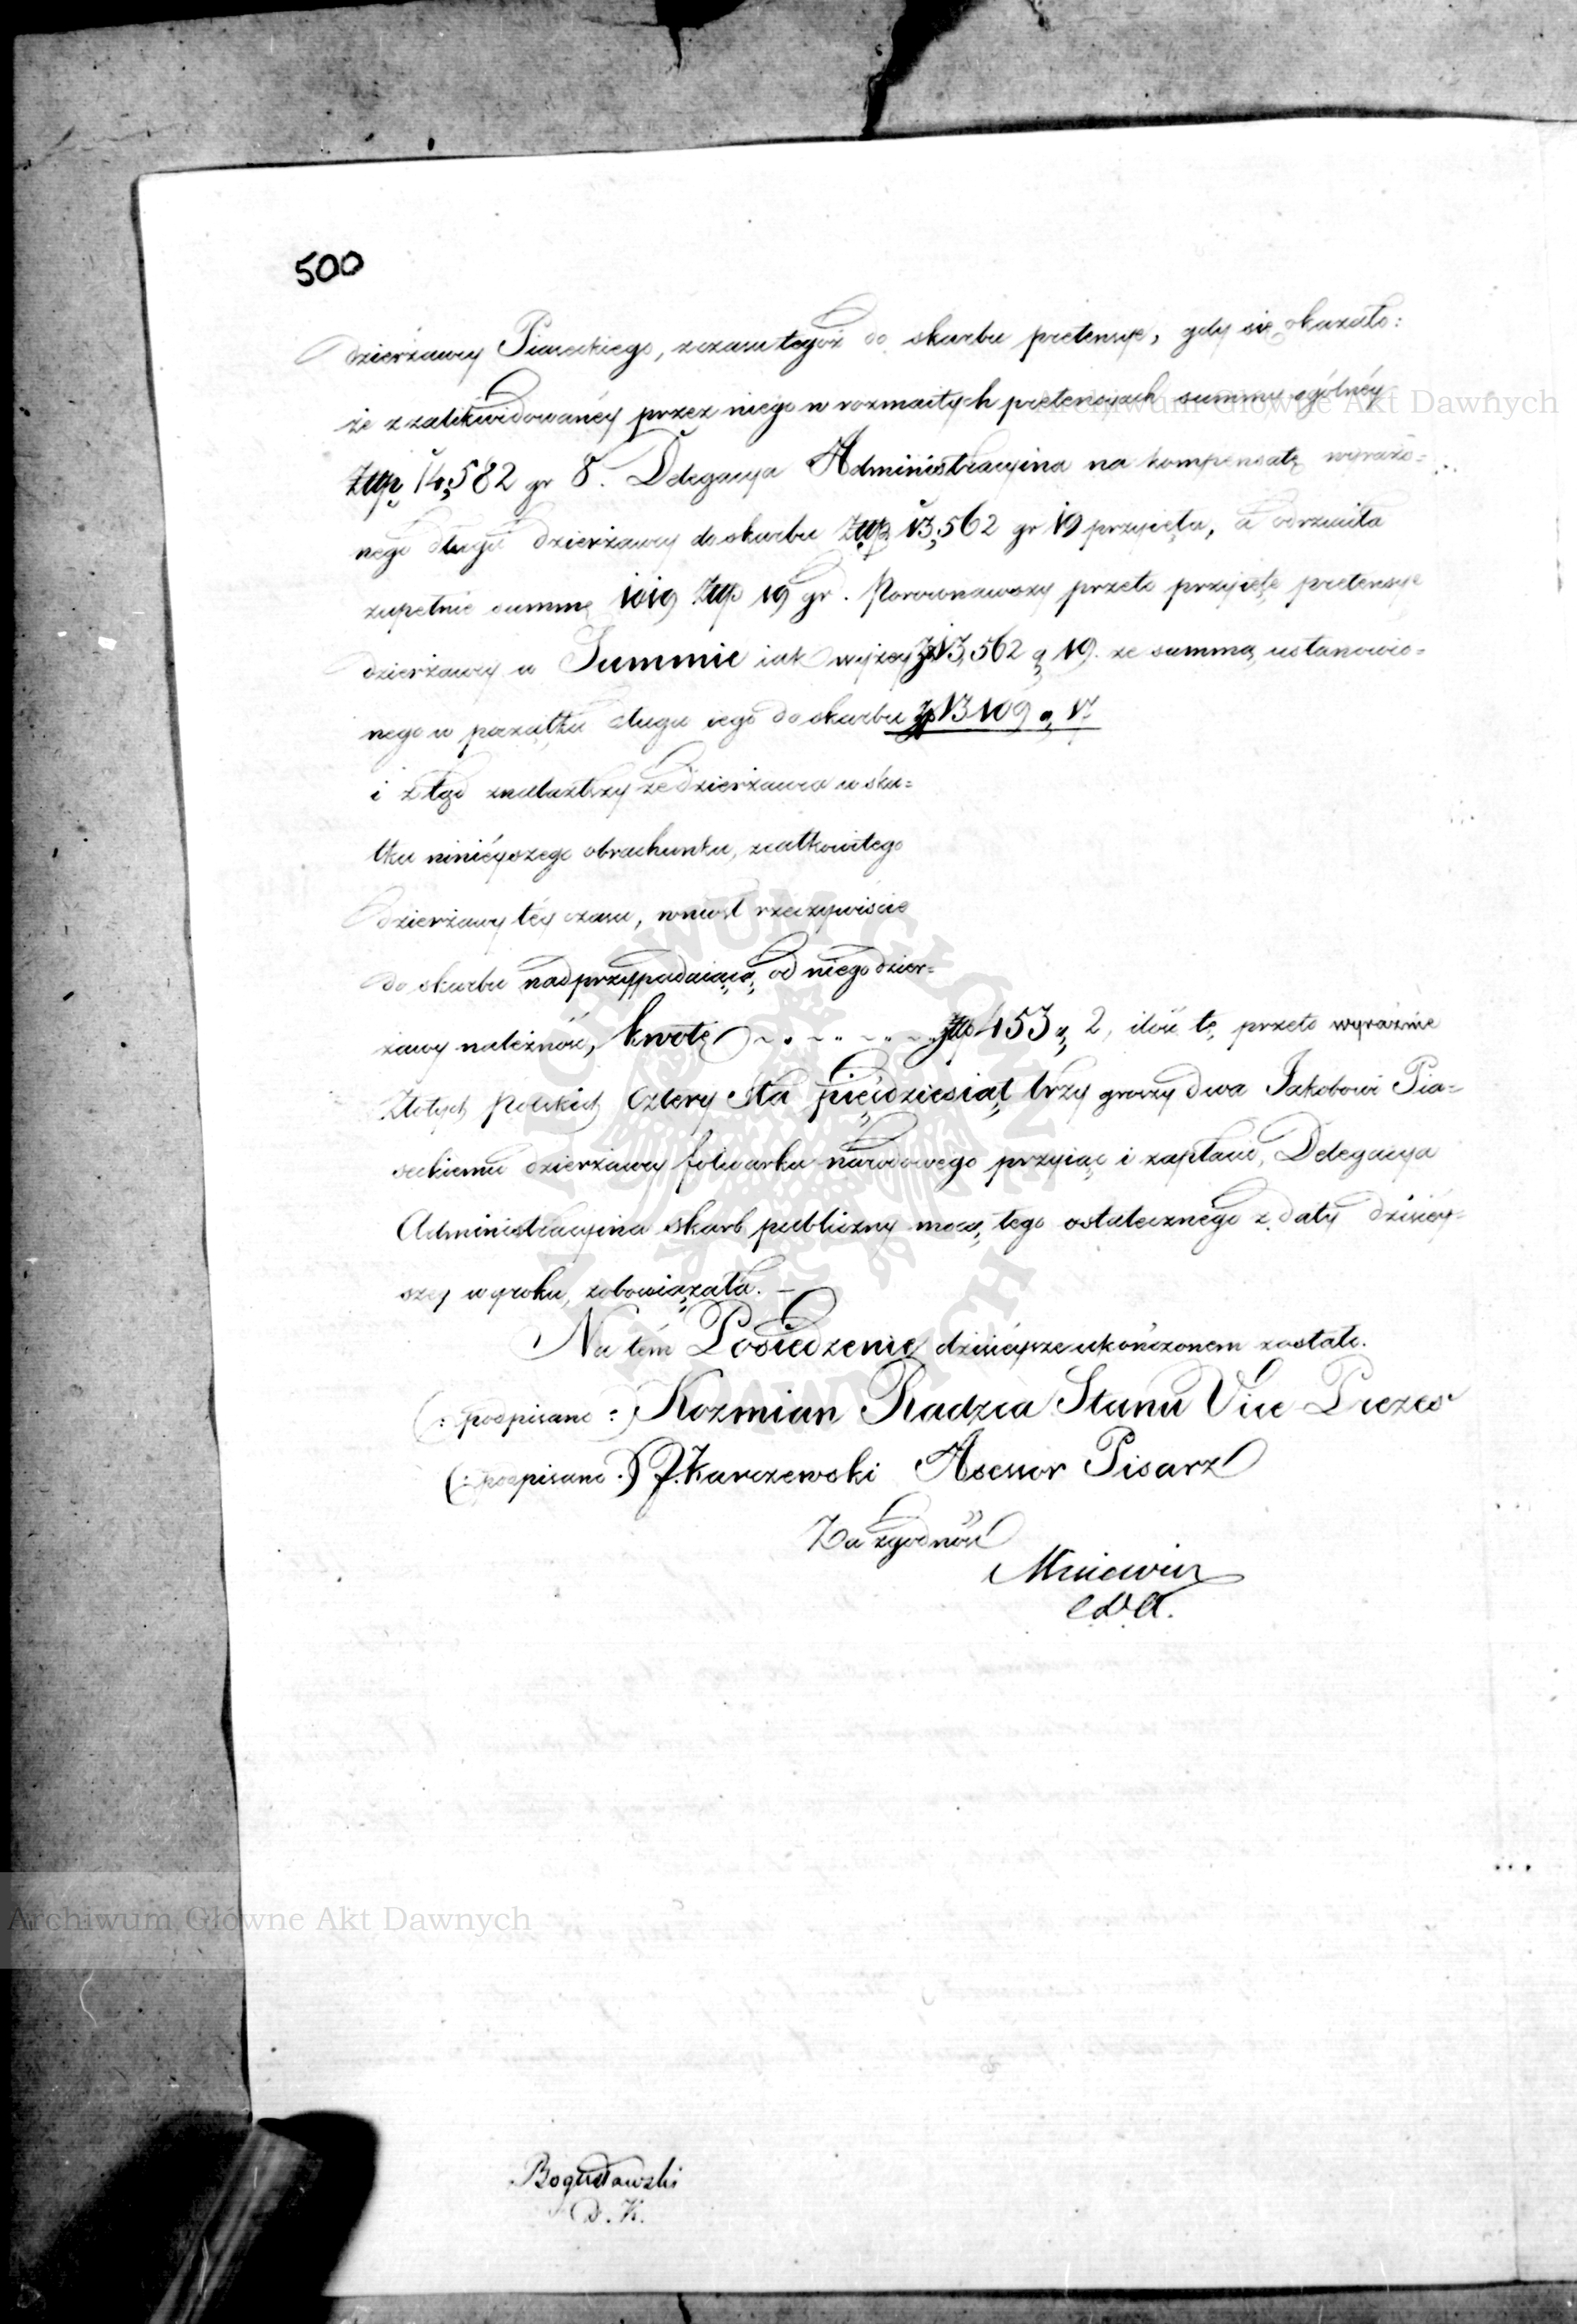 500
dzierżawcy Piaseckiego, z czasu tegoż do skarbu pretensye, gdy się okazało:
że z zalikwidowanéy przez niego w rozmaitych pretensyach summy ogólnéy
Złłp 14,582 gr 8. Delegacya Administracyina na kompensatę wyrażo=
nego długu dzierżawcy do skarbu Złłp 13,562 gr 19 przyięła, a odrzuciła
zupełnie summę 1019 Złłp 19 gr. Porównawszy przeto przyięte pretensye
dzierżawcy w Summie iak wyżey Zł 13,562 g 19. ze summą ustanowio=
nego w początku długu iego do skarbu Zł 13 109 g, 17
i z tąd znalazłszy że dzierżawca w sku=
tku ninieyszego obrachunku, z całkowitego
dzierżawy téy czasu, wniosł rzeczywiście
do skarbu nad przypadaiącą, od niego dzier=
żawy należność, kwotę Złło 453 g, 2, ilość tę, przeto wyraźnie
Złotych Polskich Cztery Sta pięćdziesiąt trzy groszy dwa Jakobowi Pia=
seckiemu dzierżawcy folwarku narodowego przyiąć i zapłacić, Delegacya
Administracyina skarb publiczny mocą tego ostatecznego z daty dzisiéy=
szey wyroku, zobowiązała. —
Na tém Posiedzenie dzisiéysze ukończonem zostało.
(: podpisano :) Kozmian Radzca Stanu Vice Prezes
(: podpisano :) J. Karczewski Asessor Pisarz
Za zgodność
Bogusławski
Archiwum Główne Akt Dawnych
Archiwum Główne Akt Dawnych
ARCHIWUM GŁÓWNE AKT DAWNYCH